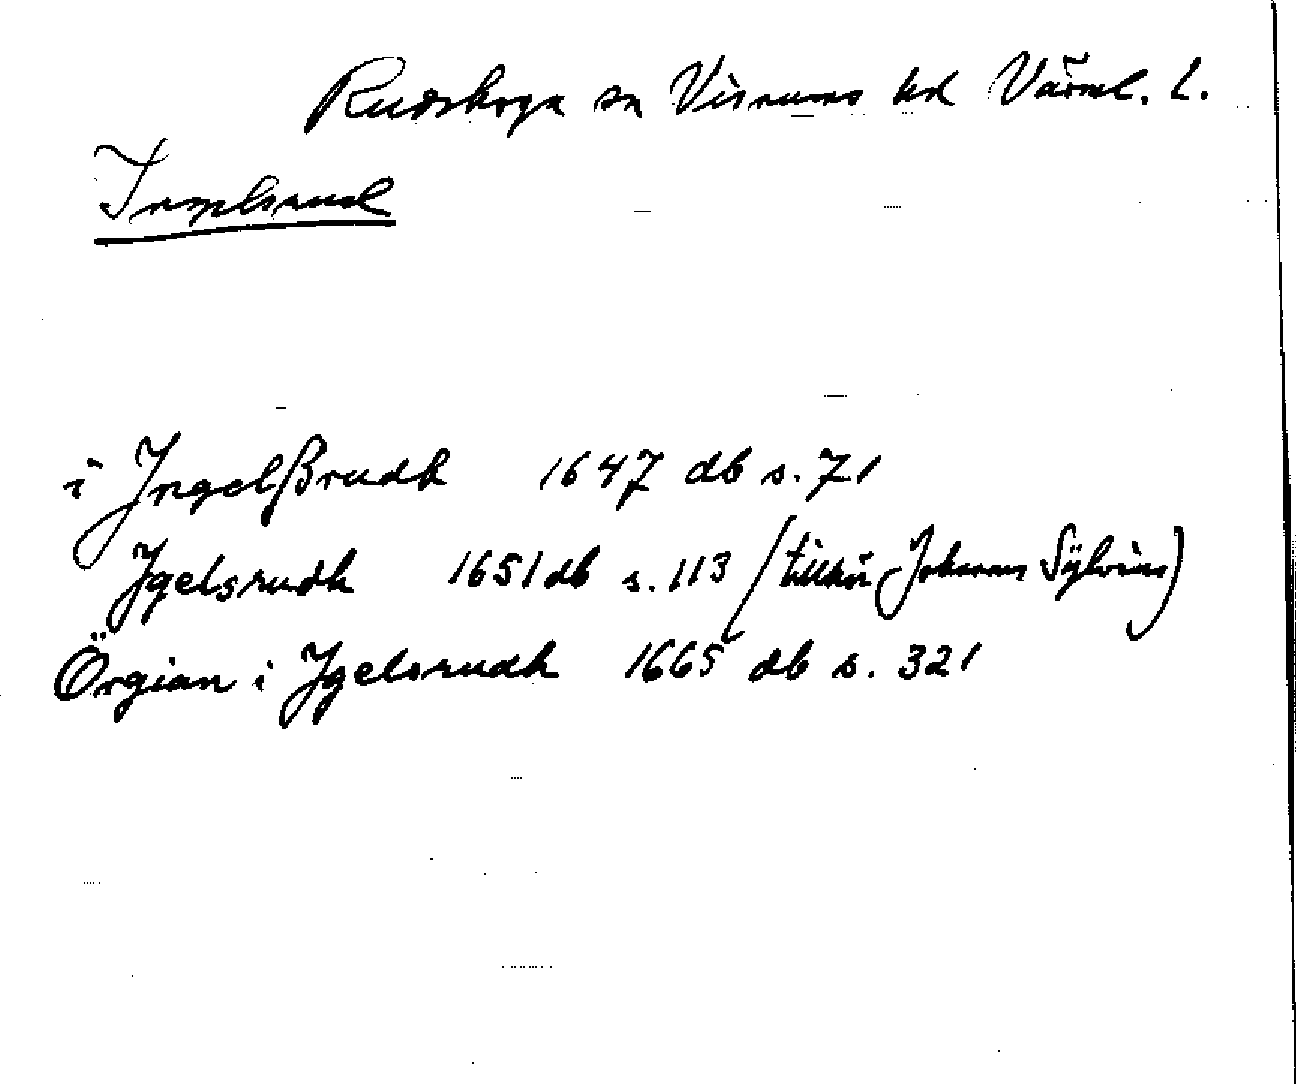 Rudskoga sn Visnums hd Värml. l.
Ingelsrud
i Jngelßrudh 1647 db s. 71
Jgelsrudh 1651 db s. 113 (tillhör Johannes Sÿlvius)
Örgian i Jgelsrudh 1665 db s. 321